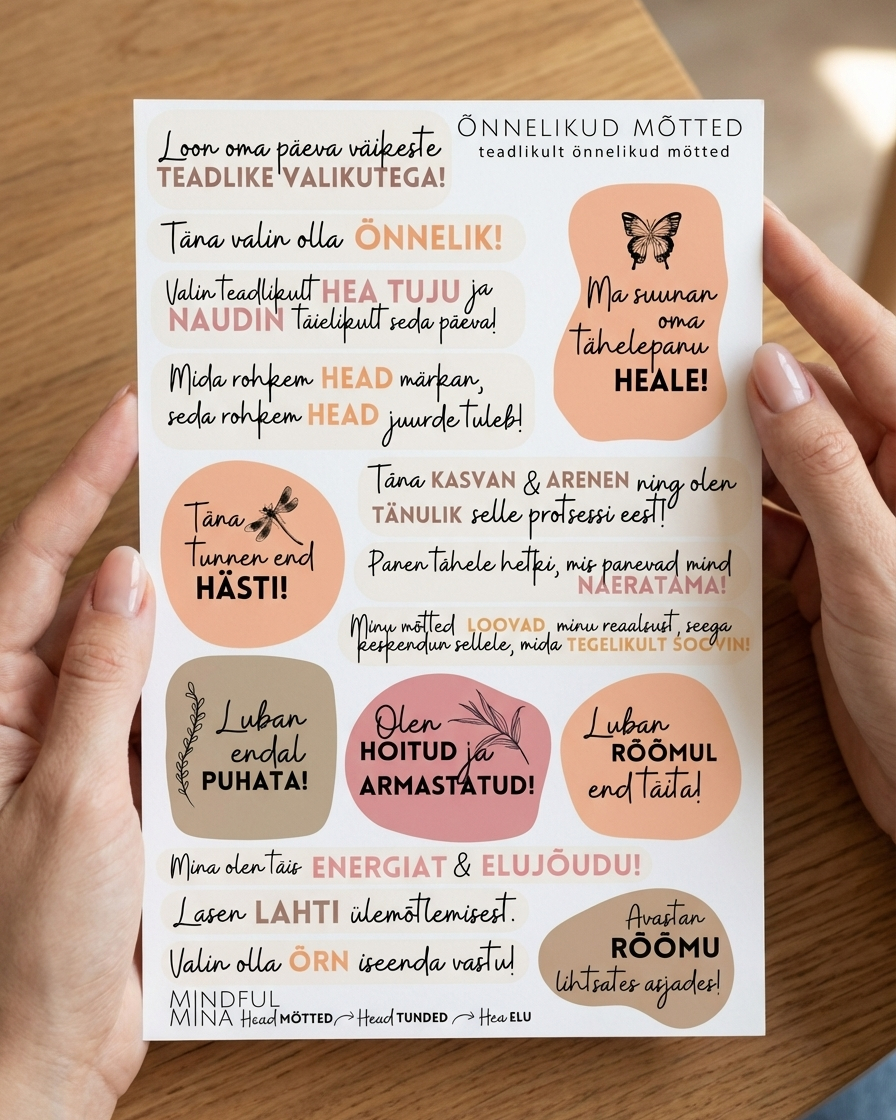 ÕNNELIKUD MÕTTED
teadlikult õnnelikud mõtted
Loon oma päeva väikeste
TEADLIKE VALIKUTEGA!
Täna valin olla ÕNNELIK!
Valin teadlikult HEA TUJU ja
NAUDIN täielikult seda päeva!
Mida rohkem HEAD märkan,
seda rohkem HEAD juurde tuleb!
Ma suunan
oma
tähelepanu
HEALE!
Täna
tunnen end
HÄSTI!
Täna KASVAN & ARENEN ning olen
TÄNULIK selle protsessi eest!
Panen tähele hetki, mis panevad mind
NAERATAMA!
Minu mõtted LOOVAD minu reaalsust, seega
keskendun sellele, mida TEGELIKULT SOOVIN!
Luban
endal
PUHATA!
Olen
HOITUD ja
ARMASTATUD!
Luban
RÕÕMUL
end täita!
Mina olen täis ENERGIAT & ELUJÕUDU!
Lasen LAHTI ülemõtlemisest.
Valin olla ÕRN iseenda vastu!
Avastan
RÕÕMU
lihtsates asjades!
MINDFUL
MINA Head MÕTTED Head TUNDED Hea ELU